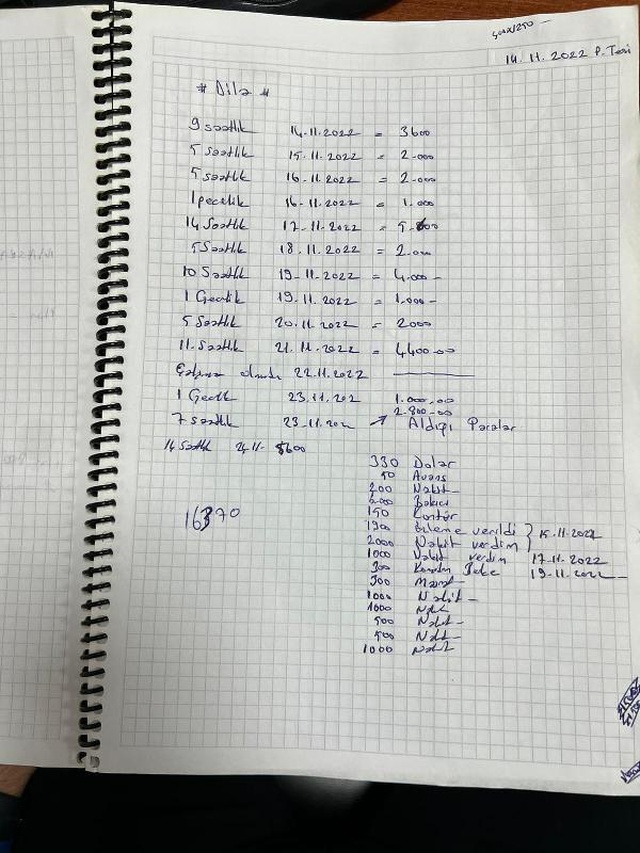 14.11.2022 P.Tesi
# Dila #
9 saatlik 14.11.2022 = 3600
5 saatlik 15.11.2022 = 2.000
5 saatlik 16.11.2022 = 2.000
1 pecelik 16.11.2022 = 1.000
14 Saatlik 17.11.2022 = 5.600
5 Saatlik 18.11.2022 = 2.000
10 Saatlik 19.11.2022 = 4.000-
1 Gecelik 19.11.2022 = 1.000-
5 Saatlik 20.11.2022 = 2000
11. Saatlik 21.11.2022 = 4400.00
olmadı 22.11.2022
1 Gecelik 23.11.202 1.000.00
7 saatlik 23.11.202 2.800.00
Aldığı Paralar
14 Saatlik 24.11- 5600
330 Dolar
50 Avans
200 Nakit
Bakıcı
150 Kontör
1300 verildi
2000 Nakit verdim 15.11.2022
1000 Nakit verdim 17.11.2022
300 19.11.2022
300
1000 Nakit
1000 Nakit
500 Nakit
500 Nakit
1000 Nakit
16370